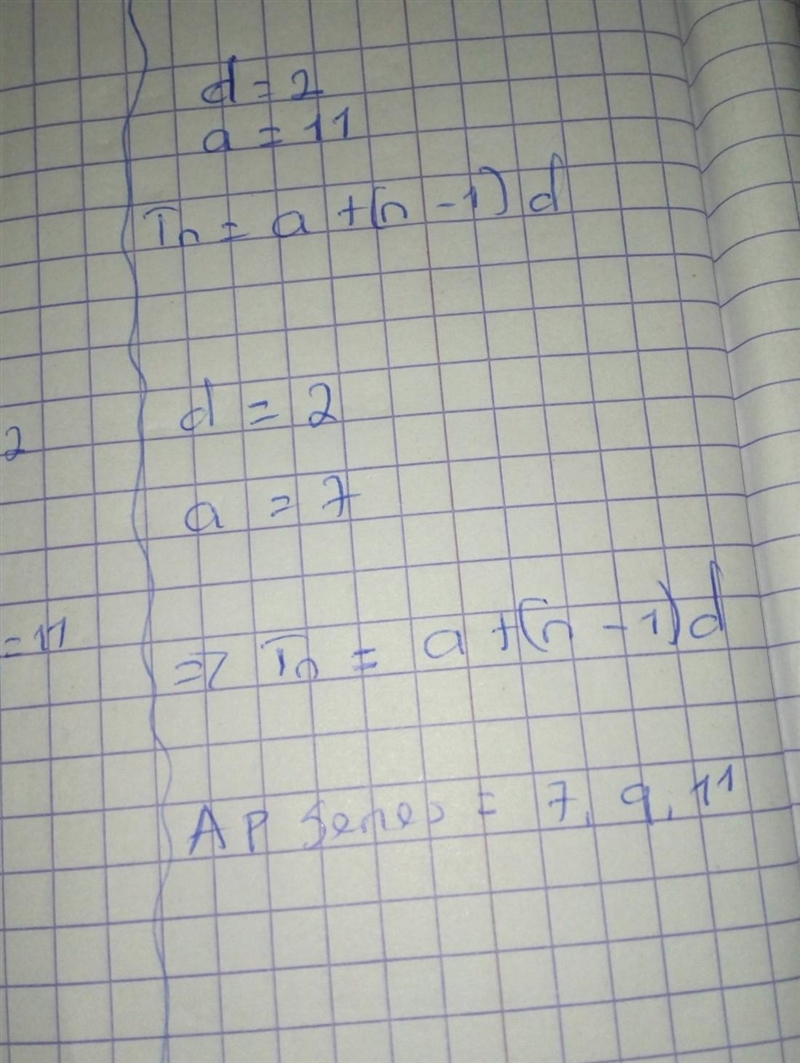 d = 2
a = 11
Tn = a + (n - 1) d
d = 2
2
a = 7
= 11
=> Tn = a + (n - 1) d
AP Series = 7, 9, 11